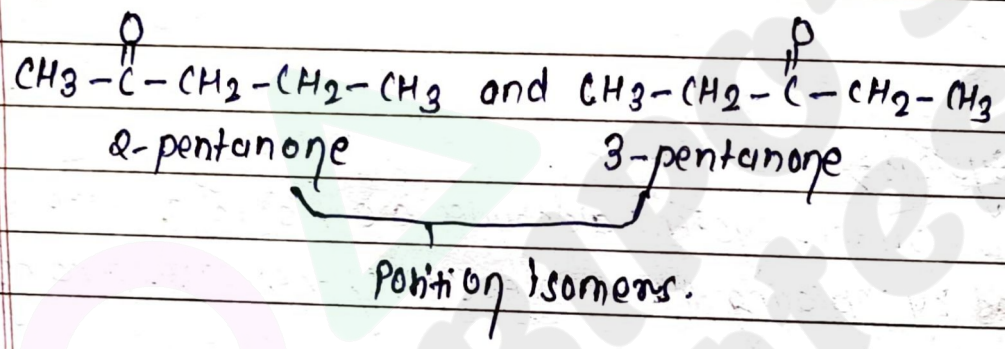 O O
CH3 - C - CH2 - CH2 - CH3 and CH3 - CH2 - C - CH2 - CH3
2-pentanone 3-pentanone
Position Isomers.